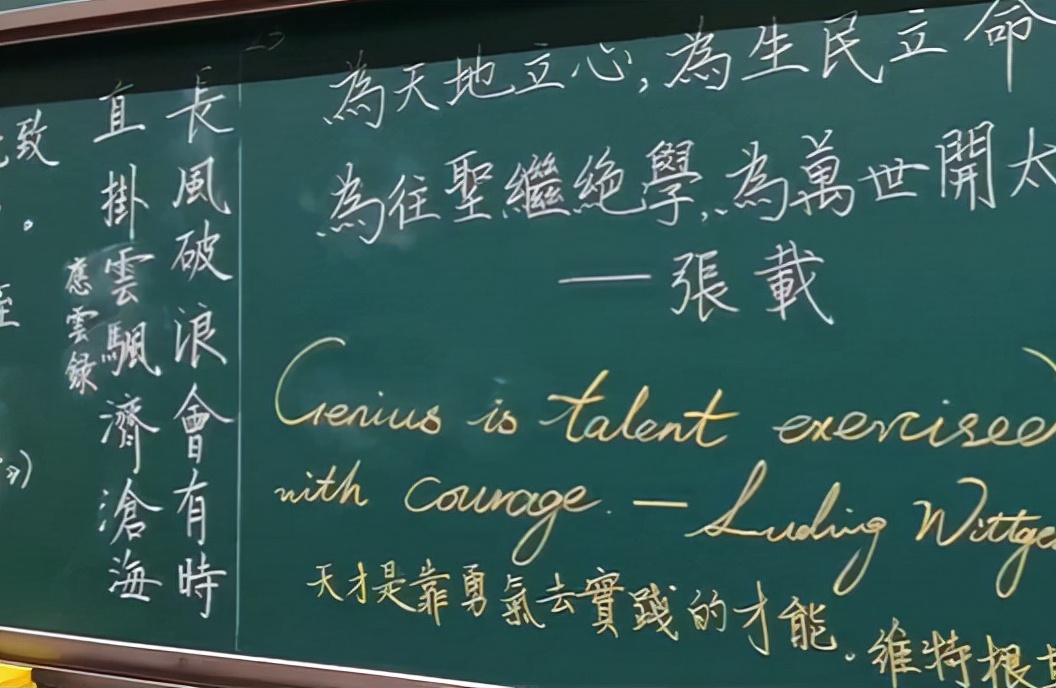 為天地立心,為生民立命
為往聖繼絕學,為萬世開太
一張載
Genius is talent exercised
with courage. — Luding Wittge
天才是靠勇氣去實踐的才能。維特根
長風破浪會有時
直掛雲颿濟滄海
應雲録
致
。